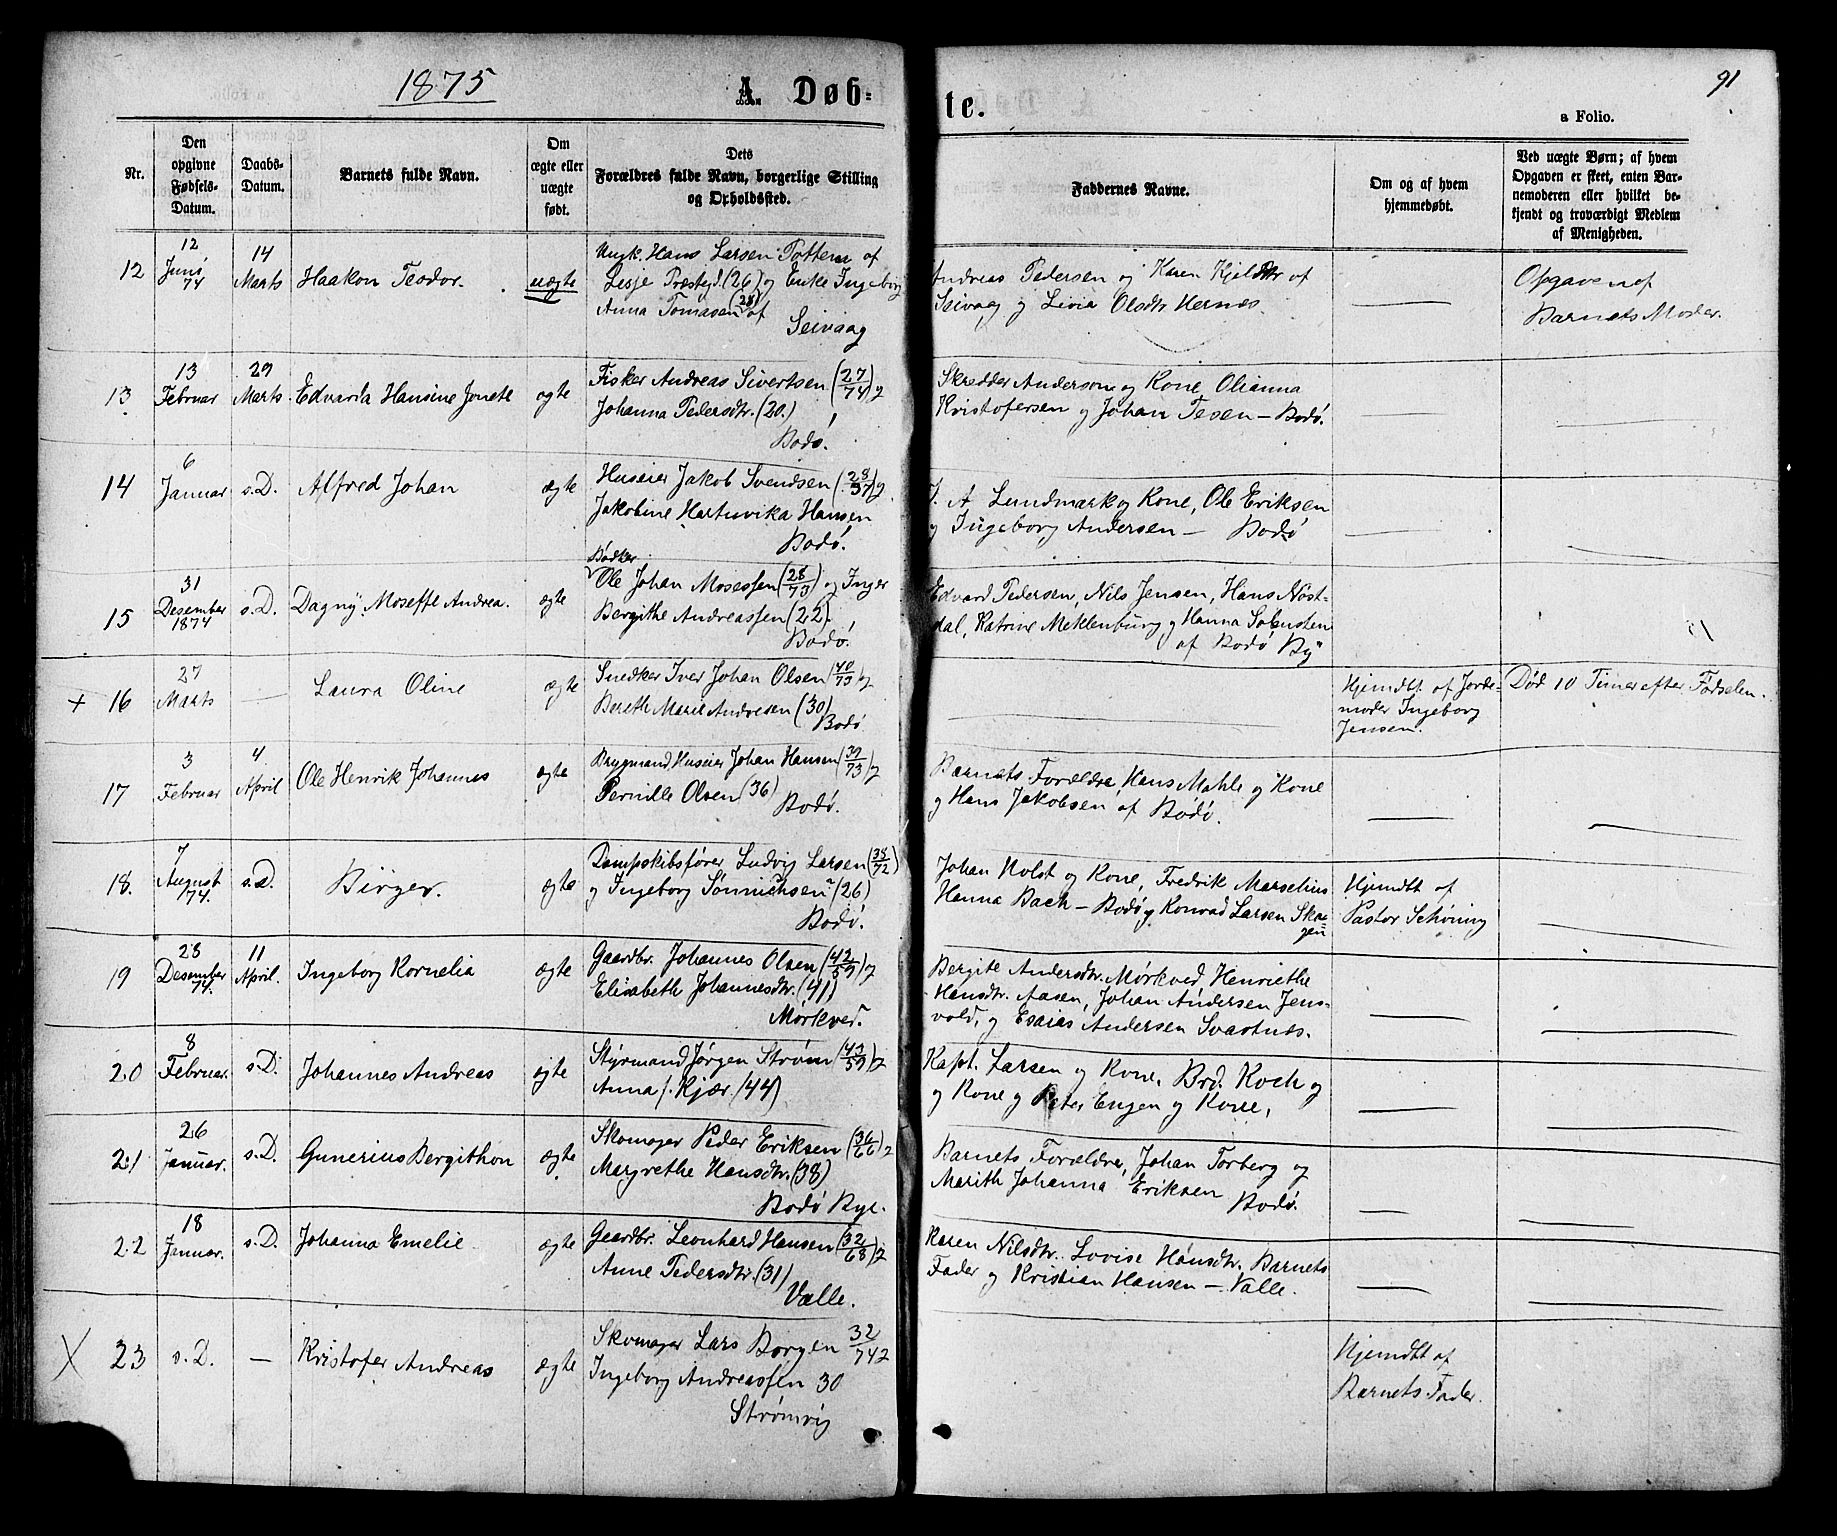 1875
A. Døb=
te.
91
a Folio.
Nr.
Den
opgivne
Fødsels-
Datum.
Daabs-
Datum.
Barnets fulde Navn.
Om
ægte eller
uægte
født.
Dets
Forældres fulde Navn, borgerlige Stilling
og Opholdssted.
Faddernes Navne.
Om og af hvem
hjemmedøbt.
Ved uægte Børn; af hvem
Opgaven er skeet, enten Bar-
nemoderen eller hvilket be-
kjendt og troværdigt Medlem
af Menigheden.
12
12
Juni
74
14
Marts
Haakon Teodor.
uægte
Ungk. Hans Larsen Tottem af
Lesje Præstegd. (26) og Enke Ingeborg
Anna Tomasen (28) af
Seivaag
Andreas Pedersen og Karen Kjeldsdtr af
Seivaag og Livia Olsdtr. Hernes.
Opgaven af
Barnets Moder.
13
13
Februar
29
Marts.
Edvarda Hansine Jonete
ægte
Fisker Andreas Sivertsen (27/74) og
Johanna Pedersdtr. (20.)
Bodø.
Skredder Anderson og Kone, Olianna
Kristofersen og Johan Tesen – Bodø.
14
6
Januar
s. D.
Alfred Johan
ægte
Huseier Jakob Svendsen (28/37) og
Jakobine Hartuvika Hansen
Bodø.
J. A Lundmark og Kone, Ole Eriksen
og Ingeborg Andersen – Bodø
15
31
Desember
1874
s. D.
Dagny Moseffe Andrea.
ægte
Bødker
Ole Johan Mosessen (28/73) og Inger
Bergithe Andreassen (22).
Bodø.
Edvard Pedersen, Nils Jensen, Hans Nöst-
dal, Katrine Meklenburg og Hanna
af Bodø By
+ 16
27
Marts
—
Laura Oline
ægte
Snedker Iver Johan Olsen (40/73) og
Bereth Marie Andresen (30)
Bodø
Hjemdbt. af Jorde-
moder Ingeborg
Jensen.
Død 10 Timer efter Fødselen.
17
3
Februar
4
April
Ole Henrik Johannes
ægte
Brygmand, Huseier Johan Hansen (39/73) og
Pernille Olsen (36)
Bodø.
Barnets Forældre, Hans Mahle og Kone
og Hans Jakobsen af Bodø.
18.
7
August
74.
s. D.
Birger.
ægte
Dampskibsfører Ludvig Larsen (38/72)
og Ingeborg Sönnichsen (26)
Bodø.
Johan Holst og Kone, Fredrik Marselius
Hanna Bach – Bodø og Konrad Larsen Ska-
gen
Hjemdbt af
Pastor Schøning
19
28
Desember
74.
11
April.
Ingeborg Kornelia
ægte
Gaardbr. Johannes Olsen (42/59) og
Elisabeth Johannesdtr. (41)
Mørkved.
Bergite Andersdtr. Mørkved, Henriethe
Hansdtr. Aasen, Johan Andersen Jens-
vold, og Esaias Andersen Svartnes.
20
8
Februar.
s. D.
Johannes Andreas
ægte
Styrmand Jørgen Strøm (43/59) og
Anna f. Kjær. (44)
Kapt. Larsen og Kone, Brd. Koch og
og Kone og Peter Engen og Kone,
21
26
Januar.
s. D.
Gunerius Bergithon
ægte
Skomager Peder Eriksen (36/66) og
Margrethe Hansdtr. (38)
Bodø Bye.
Barnets Forældre, Johan Torberg og
Marith Johanna Eriksen
Bodø.
22
18
Januar.
s. D.
Johanna Emelie
ægte
Gaardbr. Leonhard Hansen (32/68) og
Anne Pedersdtr. (31)
Valle.
Karen Nilsdtr. Lovise Hansdtr. Barnets
Fader og Kristian Hansen – Valle.
X 23
s. D.
—
Kristofer Andreas
ægte
Skomager Lars Borgen 32/74 og
Ingeborg Andreassen 30
Strømvig
Hjemdbt af
Barnets Fader.